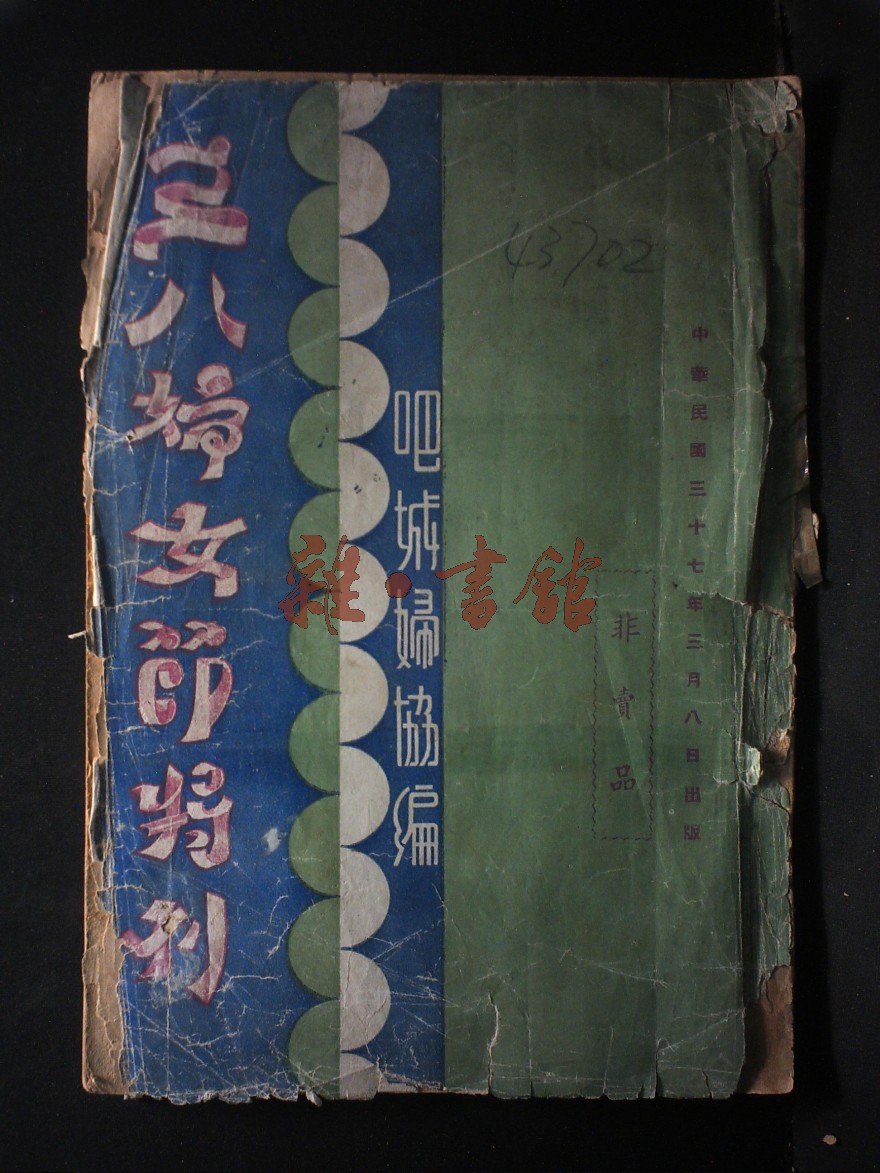 中華民國三十七年三月八日出版
非賣品
43.702
吧城婦協編
三八婦女節特刊
雜·書館